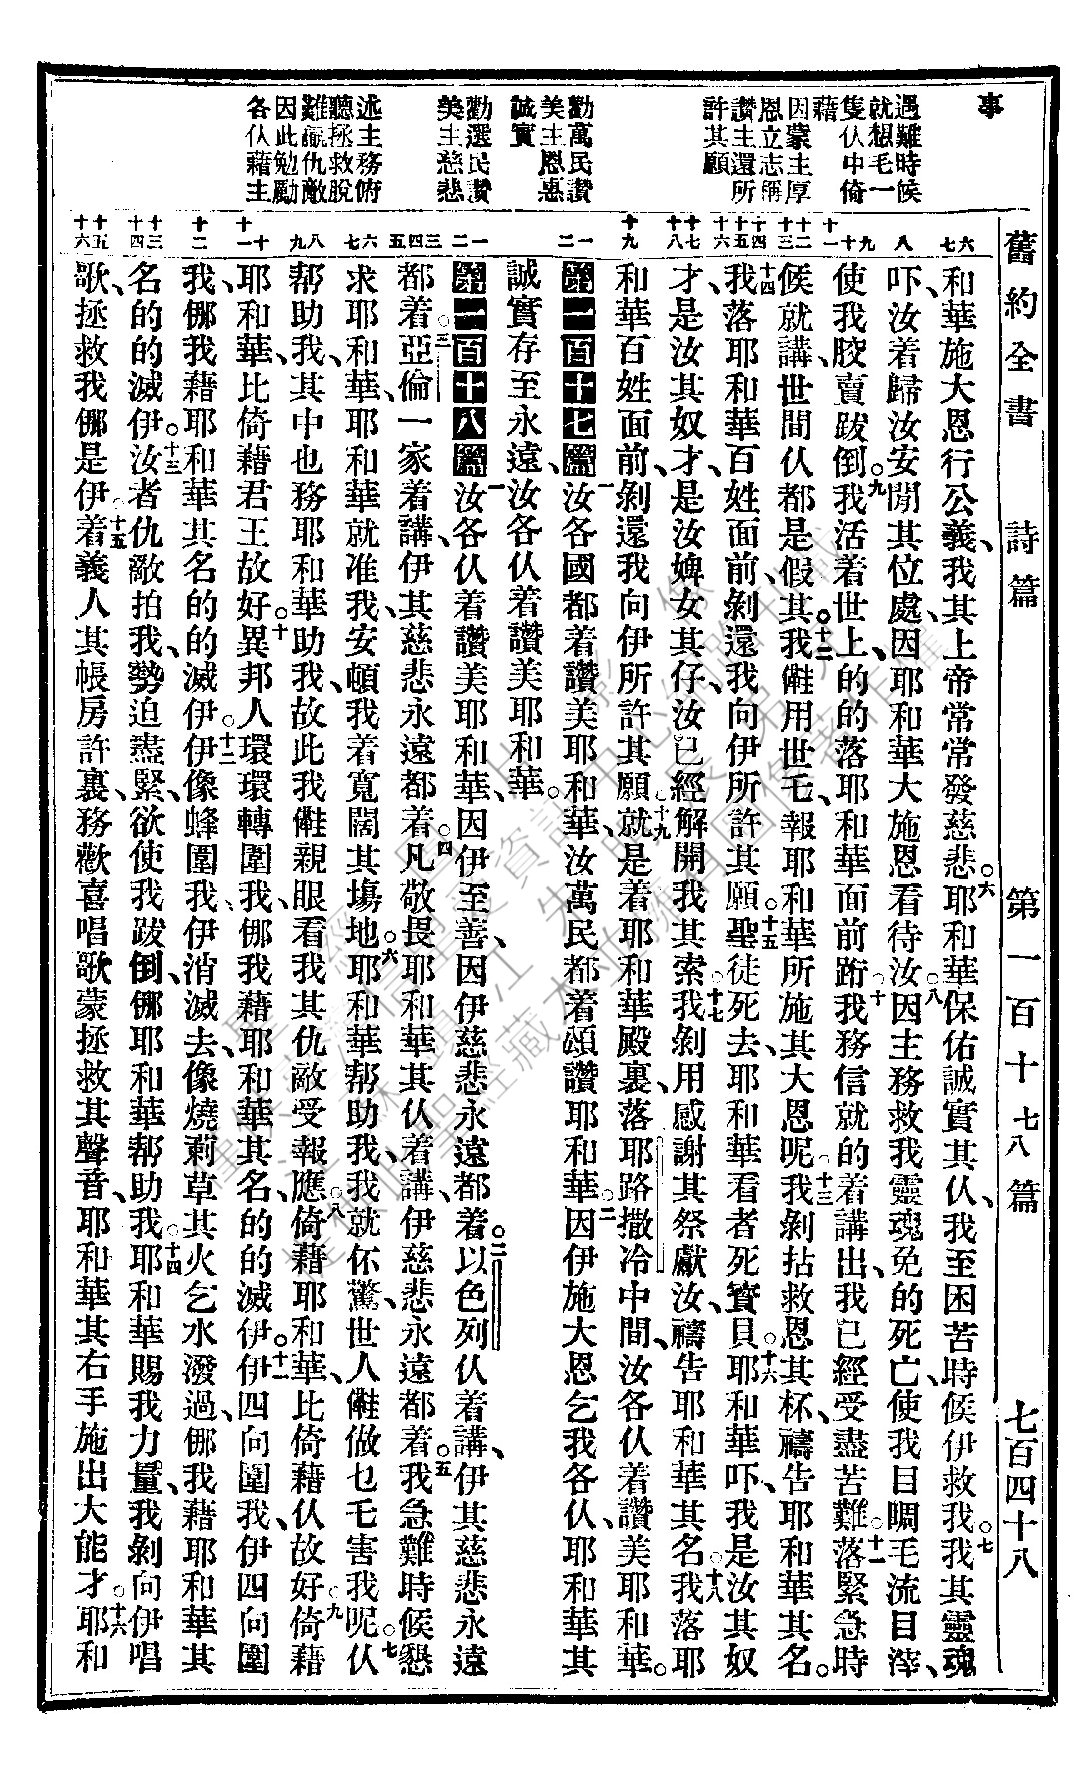 舊約全書 詩篇 第一百十七八篇 七百四十八
事
遇難時候
就想毛一
隻仈中倚
藉
因蒙主厚
恩立志稱
讚主還所
許其願
勸萬民讚
美主恩惠
誠實
勸選民讚
美主慈悲
述主務俯
聽拯救脫
難贏仇敵
因此勉勵
各仈藉主
和華施大恩行公義、我其上帝常常發慈悲。六耶和華保佑誠實其仈、我至困苦時候伊救我。七我其靈魂、
吓、汝着歸汝安閒其位處、因耶和華大施恩看待汝。八因主務救我靈魂免的死亡、使我目睭毛流目滓、
使我骹賣跋倒。九我活着世上的的落耶和華面前跲。十我務信就的着講出、我已經受盡苦難。十一落緊急時
候就講、世間仈都是假其。十二我𣍐用世乇、報耶和華所施其大恩呢。十三我剝拈救恩其杯、禱告耶和華其名。
十四我落耶和華百姓面前、剝還我向伊所許其願。十五聖徒死去、耶和華看者死寳貝。十六耶和華吓、我是汝其奴
才、是汝其奴才、是汝婢女其仔、汝已經解開我其索。十七我剝用感謝其祭獻汝、禱告耶和華其名。十八我落耶
和華百姓面前、剝還我向伊所許其願。十九就是着耶和華殿裏、落耶路撒冷中間、汝各仈着讚美耶和華。
第一百十七篇 一汝各國都着讚美耶和華、汝萬民都着頌讚耶和華。二因伊施大恩乞我各仈、耶和華其
誠實存至永遠、汝各仈着讚美耶和華。
第一百十八篇 一汝各仈着讚美耶和華、因伊至善、因伊慈悲永遠都着。二以色列仈着講、伊其慈悲永遠
都着。三亞倫一家着講、伊其慈悲永遠都着。四凡敬畏耶和華其仈着講、伊慈悲永遠都着。五我急難時候懇
求耶和華、耶和華就准我、安頓我着寬闊其塲地。六耶和華幫助我、我就伓驚、世人𣍐做乜乇害我呢。七仈
幫助我、其中也務耶和華助我、故此我𣍐親眼看我其仇敵受報應。八倚藉耶和華、比倚藉仈故好。九倚藉
耶和華、比倚藉君王故好。十異邦人環環轉圍我、㑚我藉耶和華其名、的的滅伊。十一伊四向圍我、伊四向圍
我、㑚我藉耶和華其名的的滅伊。十二伊像蜂圍我、伊消滅去、像燒莿草其火乞水潑過、㑚我藉耶和華其
名的的滅伊。十三汝者仇敵拍我、勢迫盡緊、欲使我跋倒、㑚耶和華幫助我。十四耶和華賜我力量、我剝向伊唱
歌、拯救我㑚是伊。十五着義人其帳房許裏、務歡喜唱歌、蒙拯救其聲音、耶和華其右手施出大能才。十六耶和